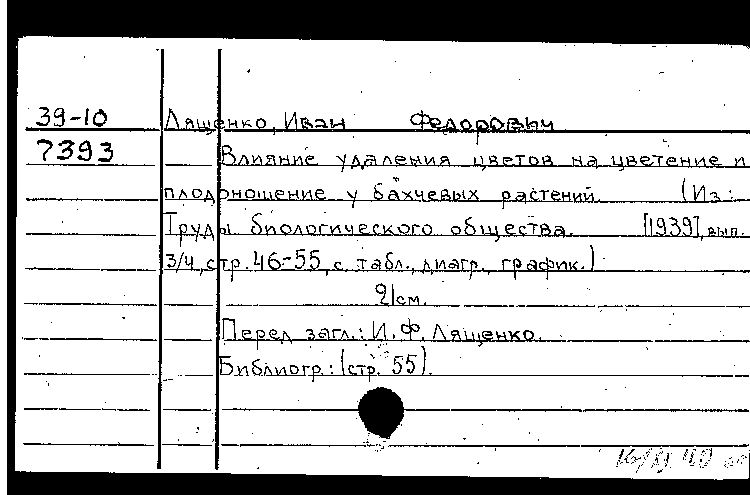 39-10 Лященко, Иван Федорович
7393 Влияние удаления цветов на цветение и
плодоношение у бахчевых растений. (Из:
Труды биологического общества. [1939], вып.
3/4, стр. 46-55, с табл., диагр., график.)
21см.
Перед загл.: И. Ф. Лященко.
Библиогр.: (стр. 55).